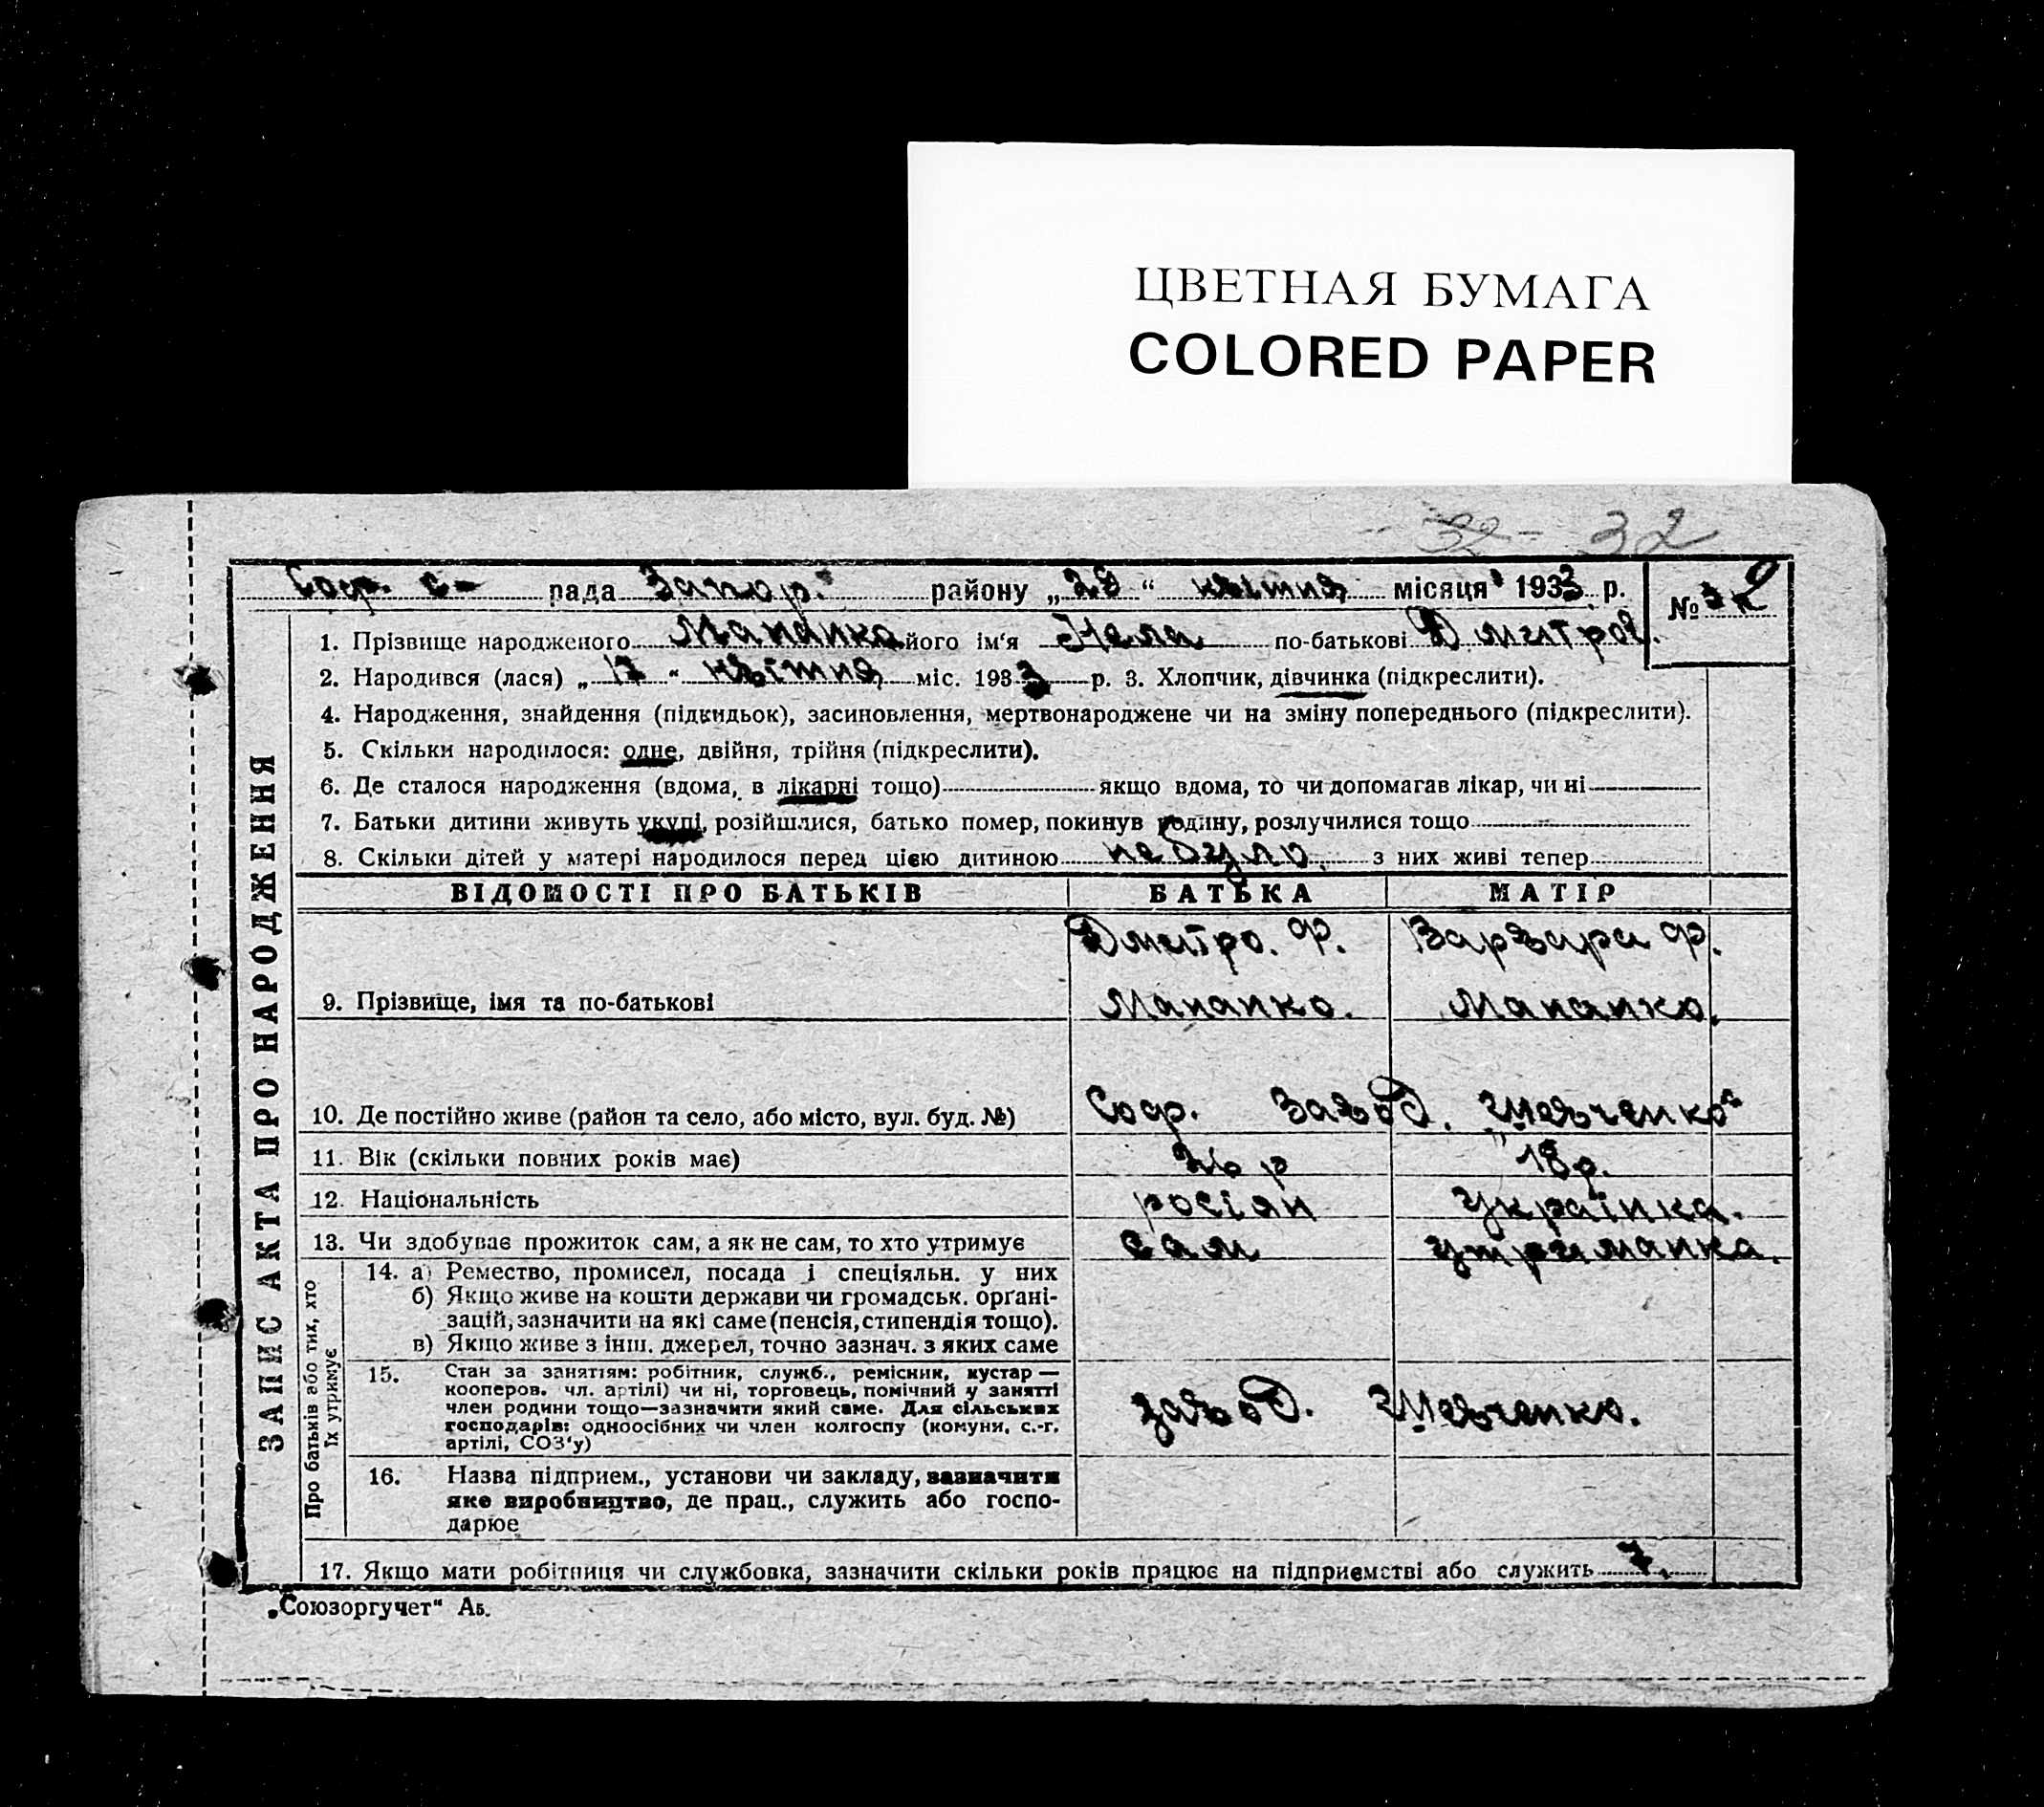 ЦВЕТНАЯ БУМАГА
COLORED PAPER
32 - 32
Соф. с- рада Запор. району „28“ квітня місяця 1933 р. № 32
1. Прізвище народженого Манапко його ім‘я Нела по-батькові Дмитров.
2. Народився (лася) „17“ квітня міс. 1933 р. 3. Хлопчик, дівчинка (підкреслити).
4. Народження, знайдення (підкидьок), засиновлення, мертвонароджене чи на зміну попереднього (підкреслити).
5. Скільки народилося: одне, двійня, трійня (підкреслити).
6. Де сталося народження (вдома, в лікарні тощо) якщо вдома, то чи допомагав лікар, чи ні
7. Батьки дитини живуть укупі, розійшлися, батько помер, покинув родину, розлучилися тощо
8. Скільки дітей у матері народилося перед цією дитиною не було. з них живі тепер
ЗАПИС АКТА ПРО НАРОДЖЕННЯ
ВІДОМОСТІ ПРО БАТЬКІВ БАТЬКА МАТІР
Дмитро. Ф. Варвара Ф.
9. Прізвище, імя та по-батькові Манапко. Манапко.
10. Де постійно живе (район та село, або місто, вул. буд. №) Соф. завод. Шевченко
11. Вік (скільки повних років має) 26 р 18 р.
12. Національність росіян українка.
13. Чи здобуває прожиток сам, а як не сам, то хто утримує сам утриманка.
Про батьків або тих, хто їх утримує
14. а) Ремество, промисел, посада і спеціяльн. у них
б) Якщо живе на кошти держави чи громадськ. орґані-
зацій, зазначити на які саме (пенсія, стипендія тощо).
в) Якщо живе з інш. джерел, точно зазнач. з яких саме
15. Стан за занятіям: робітник, служб., ремісник, кустар —
кооперов. чл. артілі) чи ні, торговець, помічний у занятті
член родини тощо—зазначити який саме. Для сільських
господарів: одноосібних чи член колгоспу (комуни, с.-г.
артілі, СОЗ‘у)
завод. Шевченко.
16. Назва підприєм., установи чи закладу, зазначити
яке виробництво, де прац., служить або госпо-
дарює
17. Якщо мати робітниця чи службовка, зазначити скільки років працює на підприємстві або служить
„Союзоргучет“ Аб.